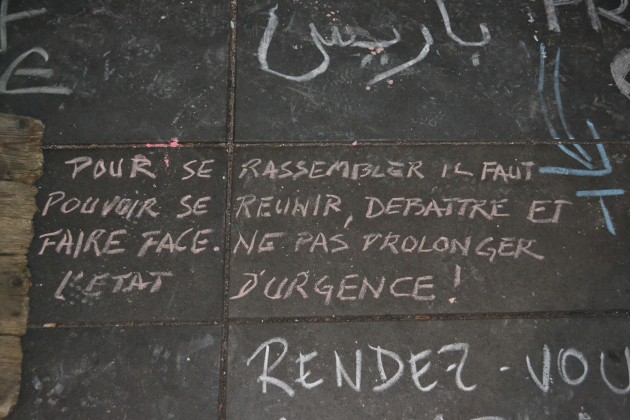 باريس
POUR SE RASSEMBLER IL FAUT
POUVOIR SE REUNIR, DEBATTRE ET
FAIRE FACE. NE PAS PROLONGER
L'ETAT D'URGENCE!
RENDEZ-VOU